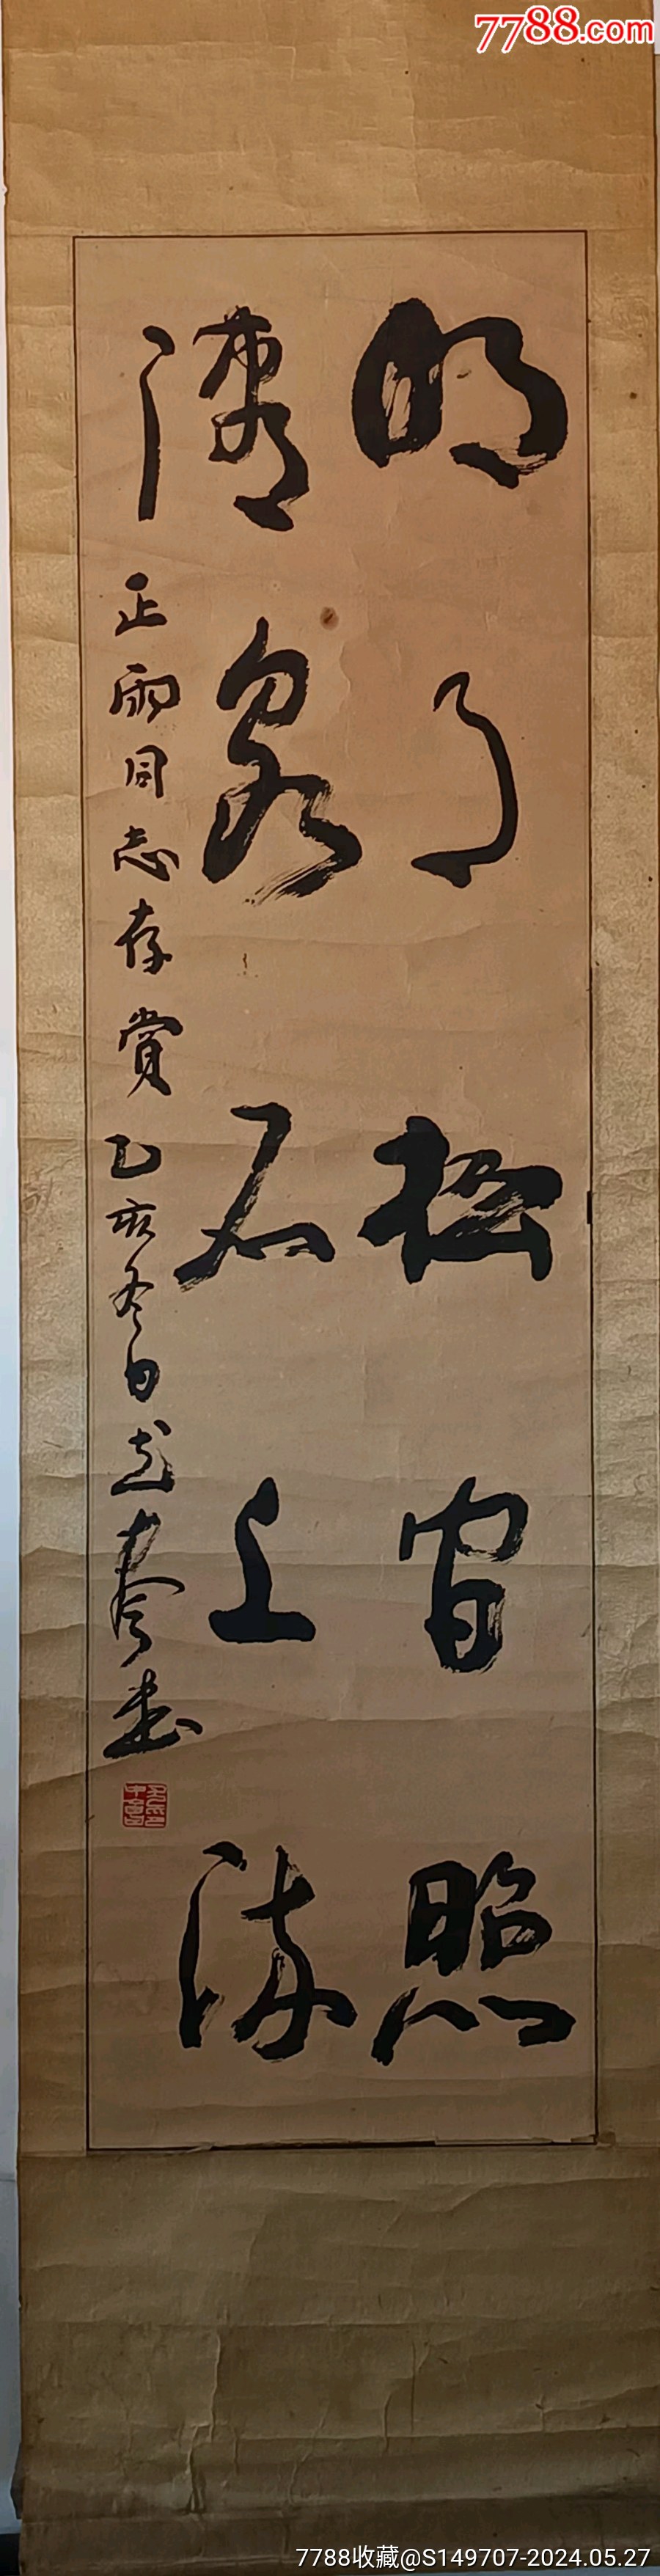 7788.com
明月松间照
清泉石上流
正雨同志存赏乙亥冬日
书
7788收藏@S149707-2024.05.27